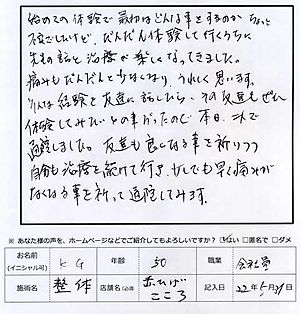 始めての体験で最初はどんな事をするのかちょっと
不安でしたけど、だんだん体験して行くうちに
先生の話と治療が楽しくなってきました。
痛みもだんだんと少なくなり、うれしく思います。
そんな経験を友達に話したら、その友達もぜひ
体験してみたいとの事だったので本日、二人で
通院しました。友達も良くなる事を祈りつつ
自分も治療を続けて行き、少しでも早く痛みが
なくなる事を祈って通院してみます。
※ あなた様の声を、ホームページなどでご紹介してもよろしいですか？ はい □匿名で □ダメ
お名前 (イニシャル可) KG 年齢 50 職業 会社員
施術名 整体 店舗名(必須) 赤ひげこころ 記入日 22年5月29日